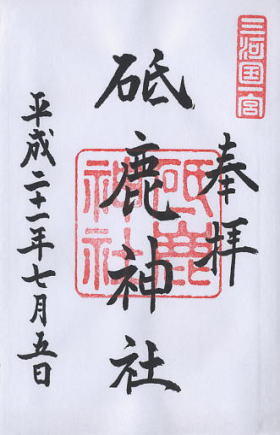 三河国一宮
奉拝
砥鹿神社
砥鹿神社
平成二十一年七月五日